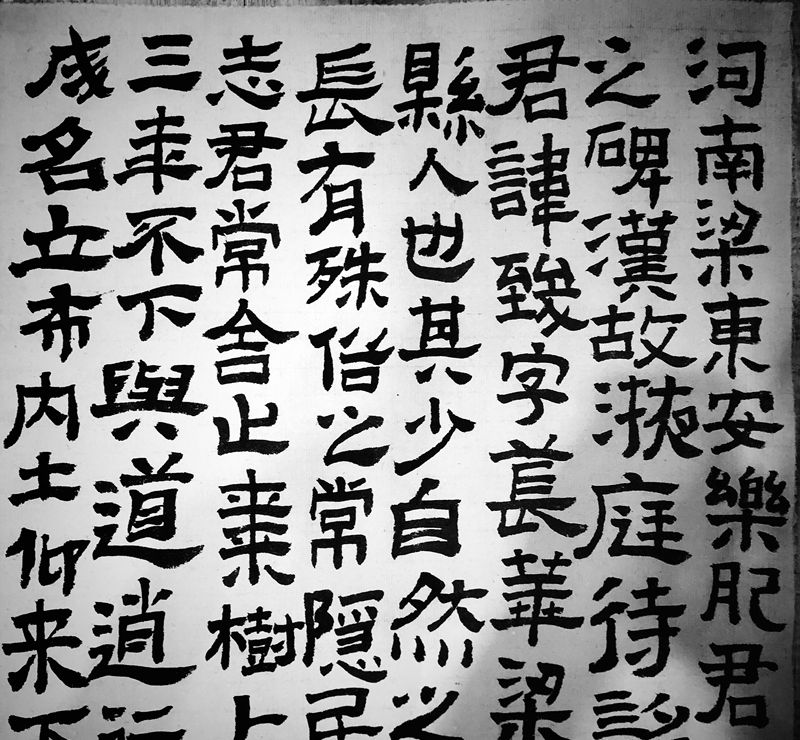 河南梁東安樂肥君
之碑漢故掖庭待
君諱致字萇華梁
縣人也其少自然之
長有殊俗之常隱居
志君常舍止棗樹上
三年不下與道逍
成名立布内士仰来